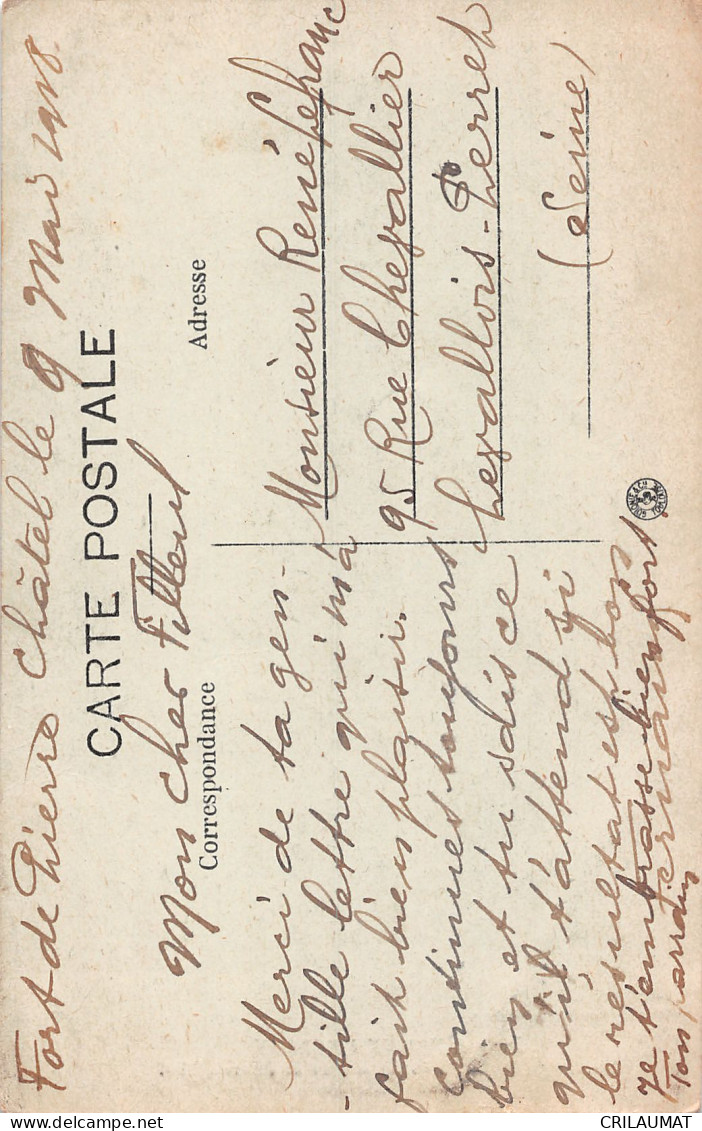 Fort de Pierre Châtel le 9 Mai 1918
CARTE POSTALE
Correspondance
Adresse
Mon cher Filleul
Merci de ta gen-
-tille lettre qui m'a
fait bien plaisir.
continues toujours
bien et tu sais ce
qu'il t'attend si
le resultat est bon
Je t'embrasse bien fort.
Ton parrain
Monsieur René Lefranc
95 Rue Chevallier
Levallois-Perret
(Seine)
CRILAUMAT